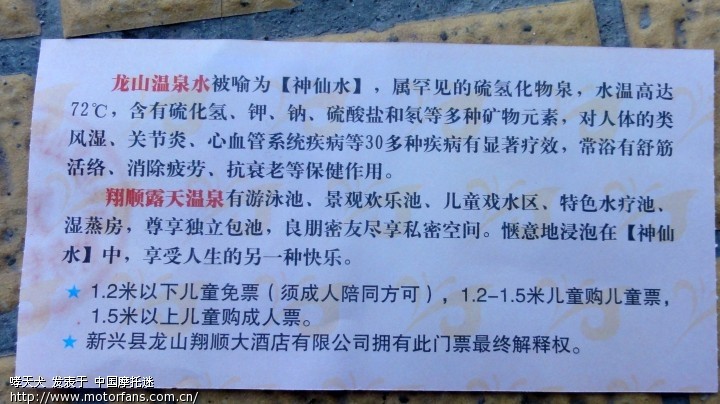 龙山温泉水被喻为【神仙水】，属罕见的硫氢化物泉，水温高达
72℃，含有硫化氢、钾、钠、硫酸盐和氡等多种矿物元素，对人体的类
风湿、关节炎、心血管系统疾病等30多种疾病有显著疗效，常浴有舒筋
活络、消除疲劳、抗衰老等保健作用。
翔顺露天温泉有游泳池、景观欢乐池、儿童戏水区、特色水疗池、
湿蒸房，尊享独立包池，良朋密友尽享私密空间。惬意地浸泡在【神仙
水】中，享受人生的另一种快乐。
★ 1.2米以下儿童免票（须成人陪同方可），1.2-1.5米儿童购儿童票，
1.5米以上儿童购成人票。
★ 新兴县龙山翔顺大酒店有限公司拥有此门票最终解释权。
哮天犬 发表于 中国摩托迷
http://www.motorfans.com.cn/